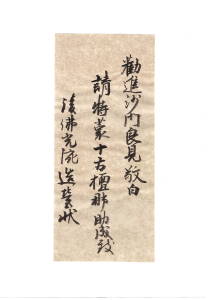 勸進沙門良見敬白
請特蒙十方檀那助成致
造營狀